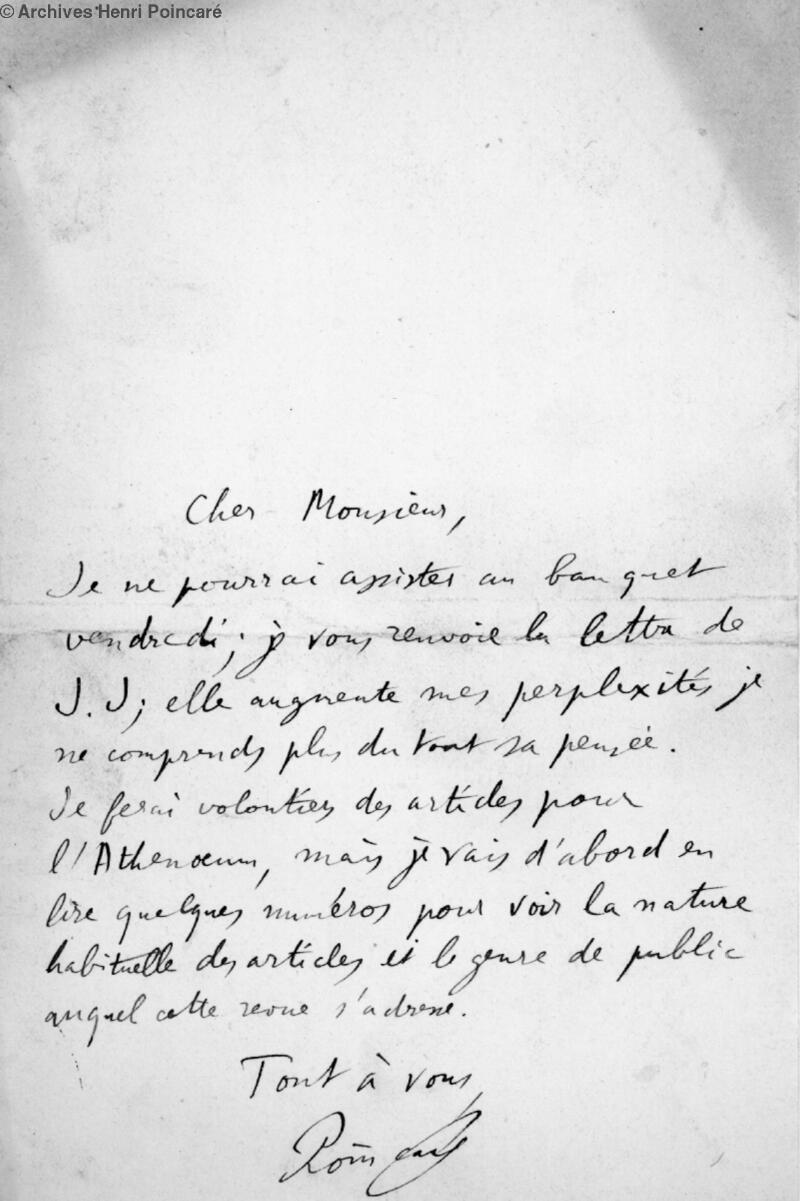 © Archives Henri Poincaré
Cher Monsieur,
Je ne pourrai assister au banquet
vendredi; je vous renvoie la lettre de
J. J; elle augmente mes perplexités je
ne comprends plus du tout sa pensée.
Je ferai volontiers des articles pour
l'Athenœum, mais je vais d'abord en
lire quelques numéros pour voir la nature
habituelle des articles et le genre de public
auquel cette revue s'adresse.
Tout à vous,
Poincaré